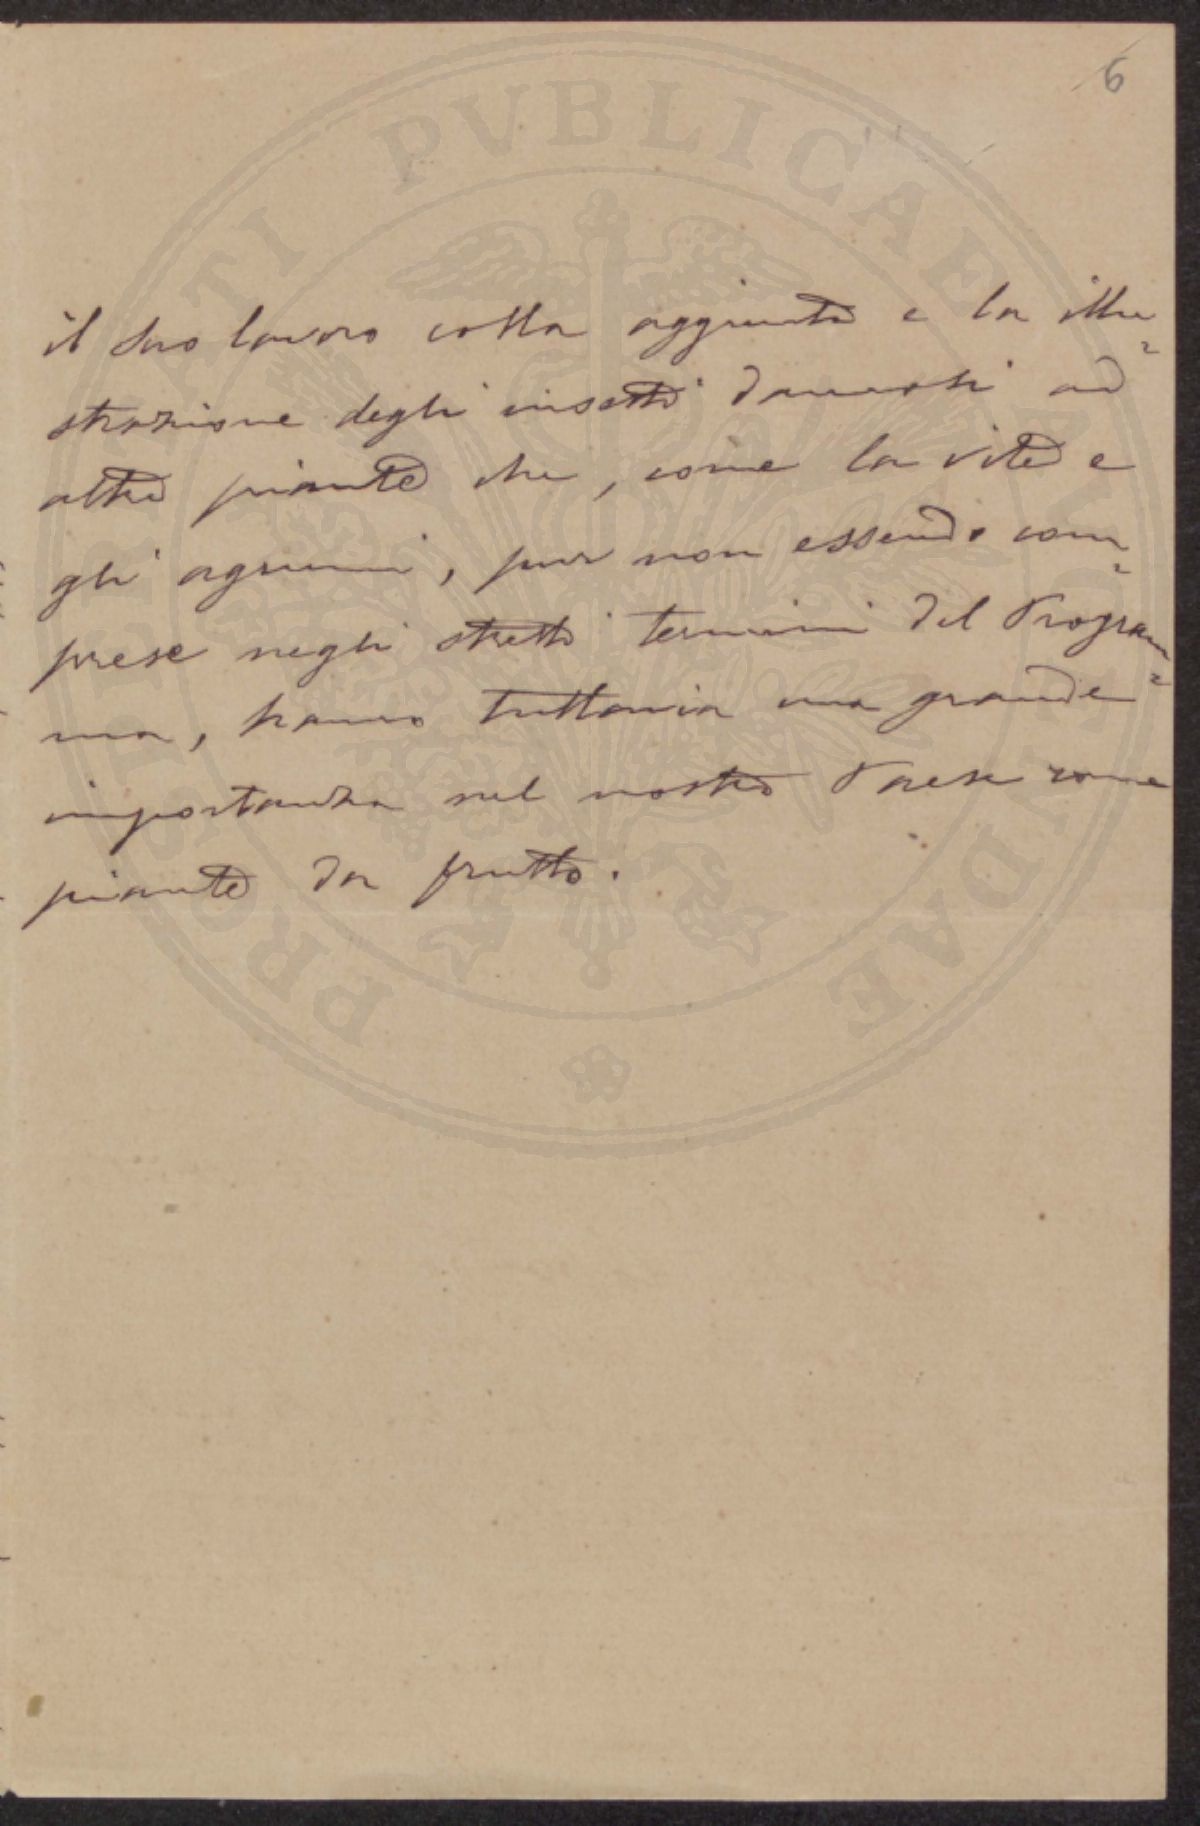 6
il suo lavoro colla aggiunta e la illu=
strazione degli insetti dannosi ad
altre piante che, come la vite e
gli agrumi, pur non essendo com=
prese negli stretti termini del Program=
ma, hanno tuttavia una grande
importanza nel nostro Paese come
piante da frutto.
PROSPERITATI PVBLICAE PROVIDAE